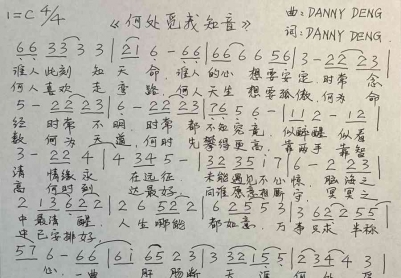 1=C 4/4 《何处觅我知音》 曲: DANNY DENG
词: DANNY DENG
66 33 3 3 | 21 6 - 66 | 66 6 6 56 | 3 - 22 23
谁人此刻 知天命, 谁人的心 想要安定, 时常 念
何人喜欢 走 何人天生 想要孤傲, 何为 命
5 - 22 23 | 6 - 22 23 | 76 5 6 - | 11 2 | 12
经 时常 不明, 时常 都不知究竟, 似醒 似看
数 何为 天道, 何时 先攀得更高, 靠两手 靠智
3 - 22 4 | 4 34 5 - | 32 35 1 7 | 6 - 2 23
清 情缘永 在远征 未能遇见不小心惊, 脑海之
高 何时刻 达最好, 问谁愿意想断 冥冥之
2 13 62 2 | 2 6 52 2 | 6 25 5 3 | 3 62 2 55
中最清 醒, 人生哪能 都如意, 万事只求 半称
已安排好,
57 6 - 66 | 61 65 23 | 3 32 15 5 | 2 34 4 3
心, 一曲 肝肠断 天涯 何处